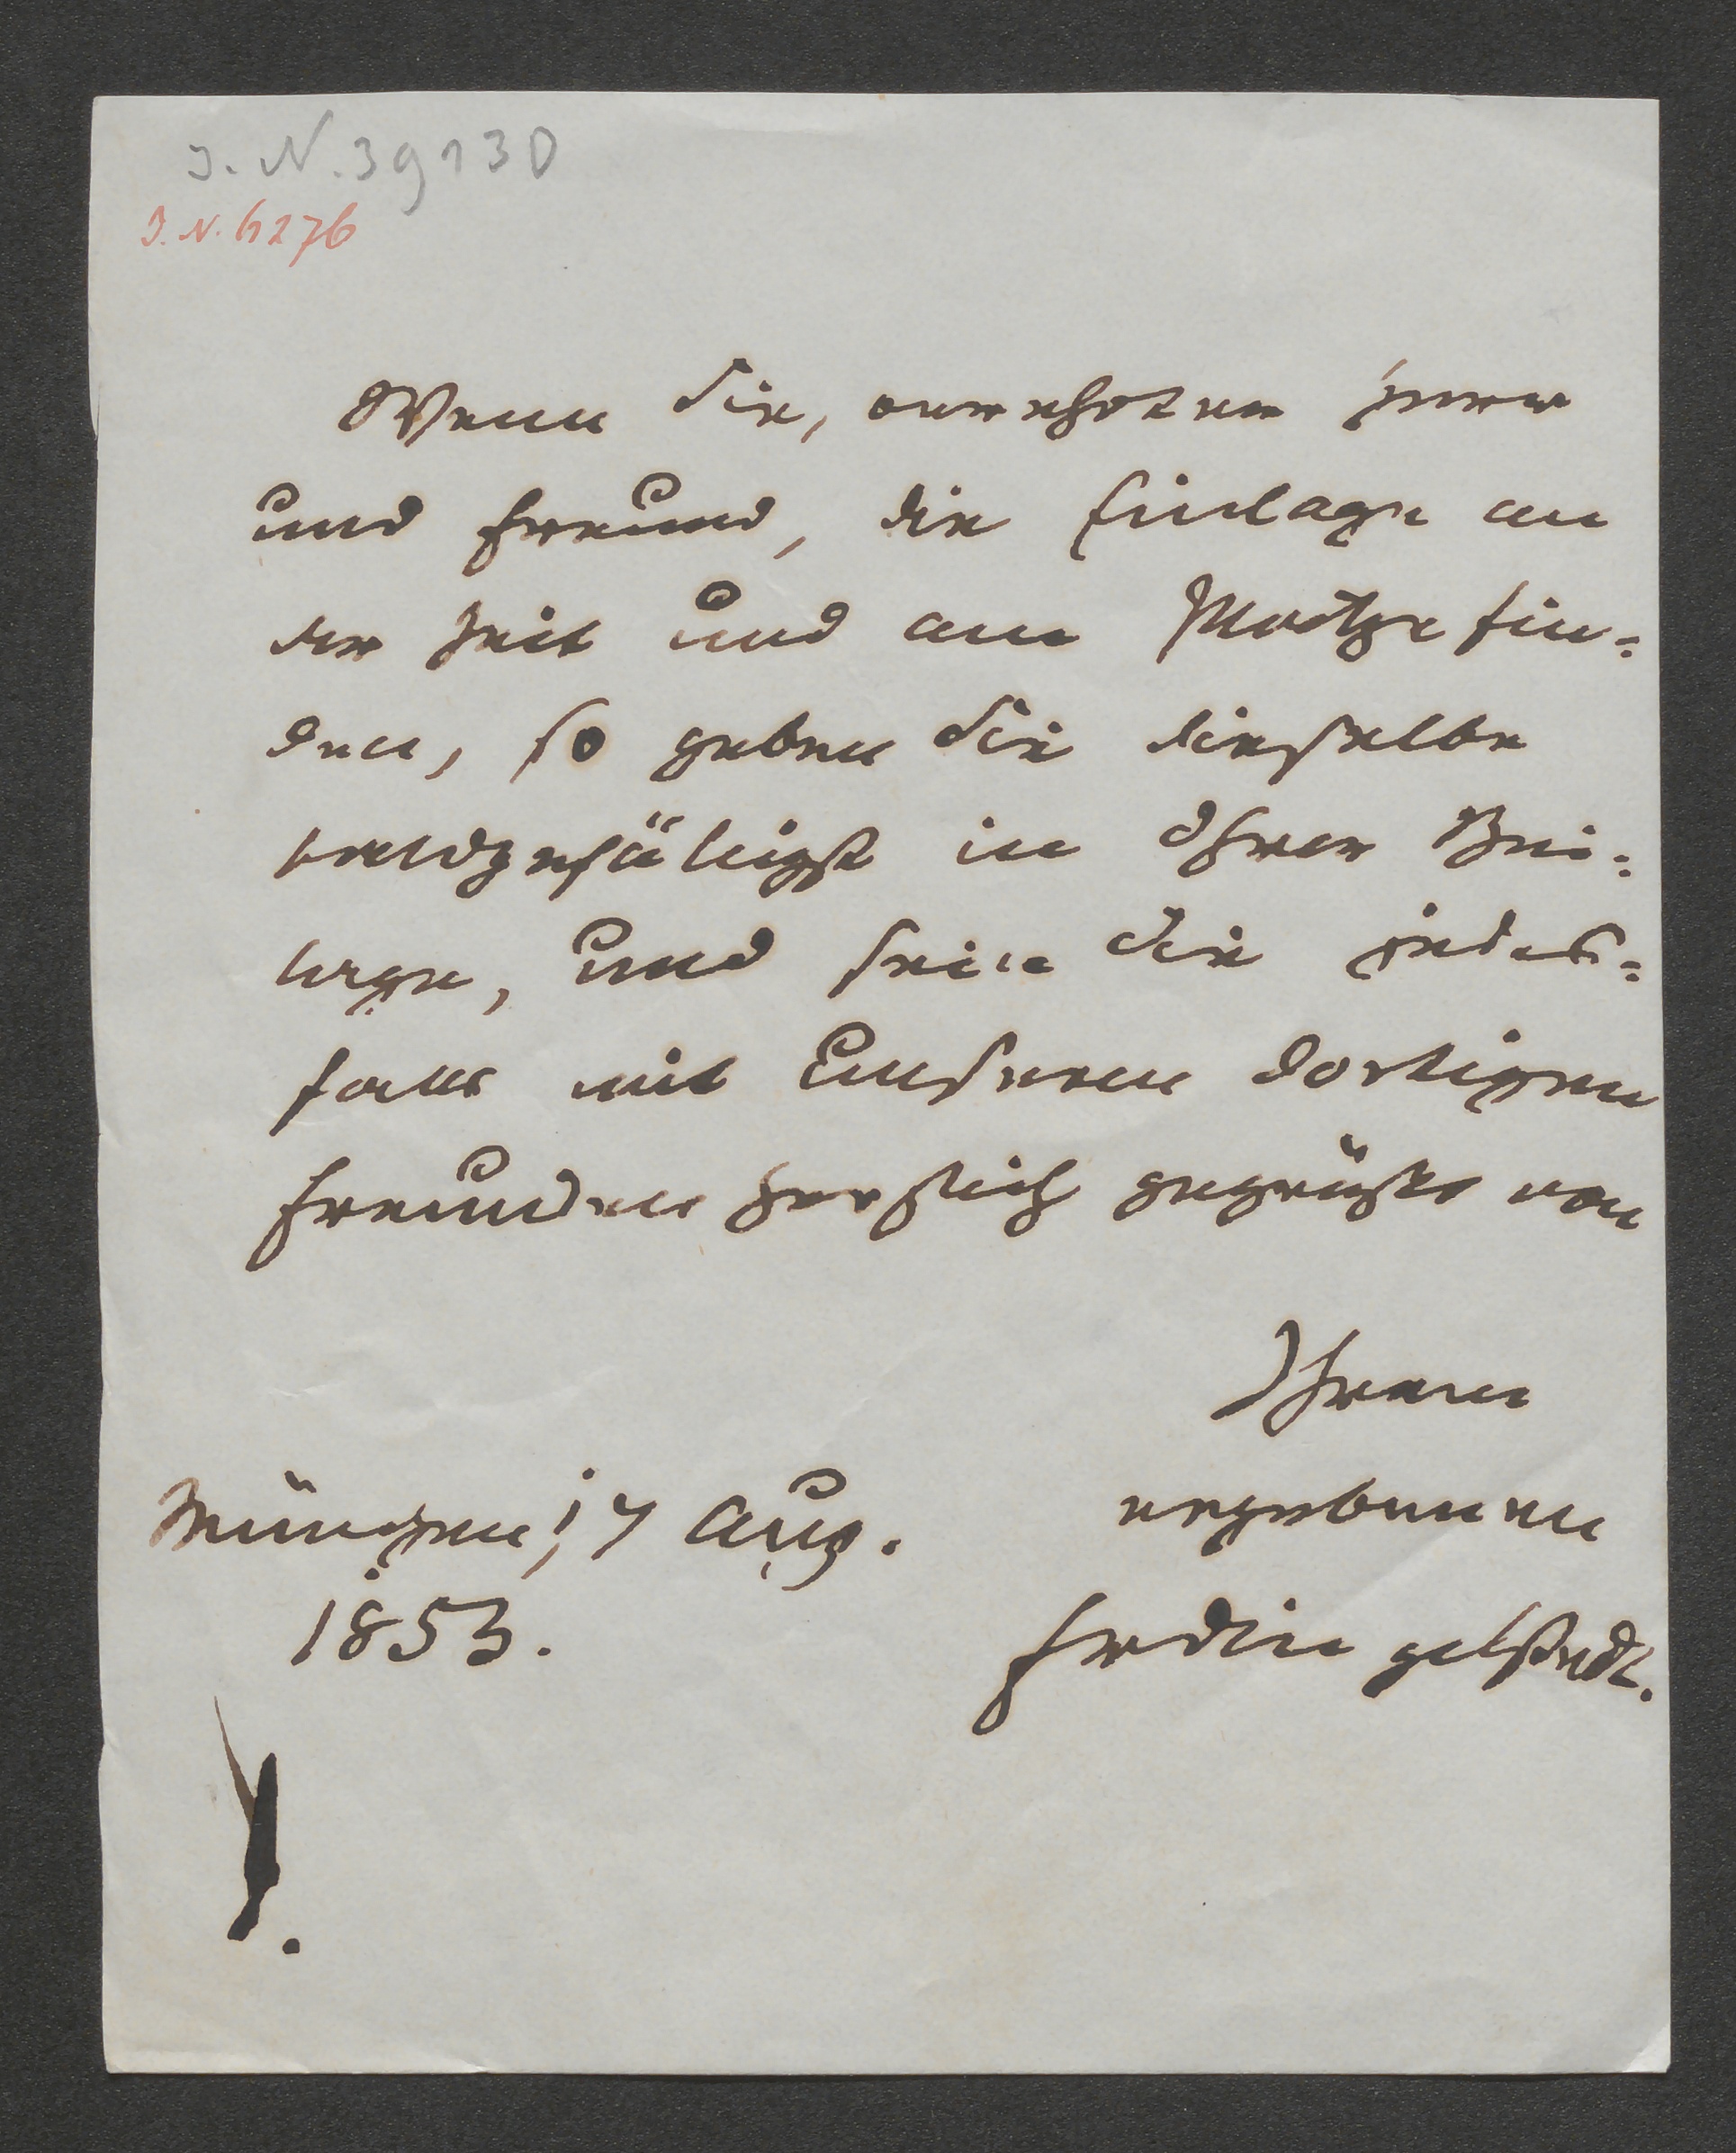 I. N. 39130
I. N. 6276
Wenn Sie, verehrter Herr
und Freund, die Einlage an
der Zeit und am Platze fin=
den, so geben Sie dieselbe
baldgefälligst in Ihrer Bei=
lage, und sein Sie jeden=
falls mit unseren dortigen
Freunden herzlich gegrüßt von
Ihrem
ergebenen
München, 17 Aug.
1853.